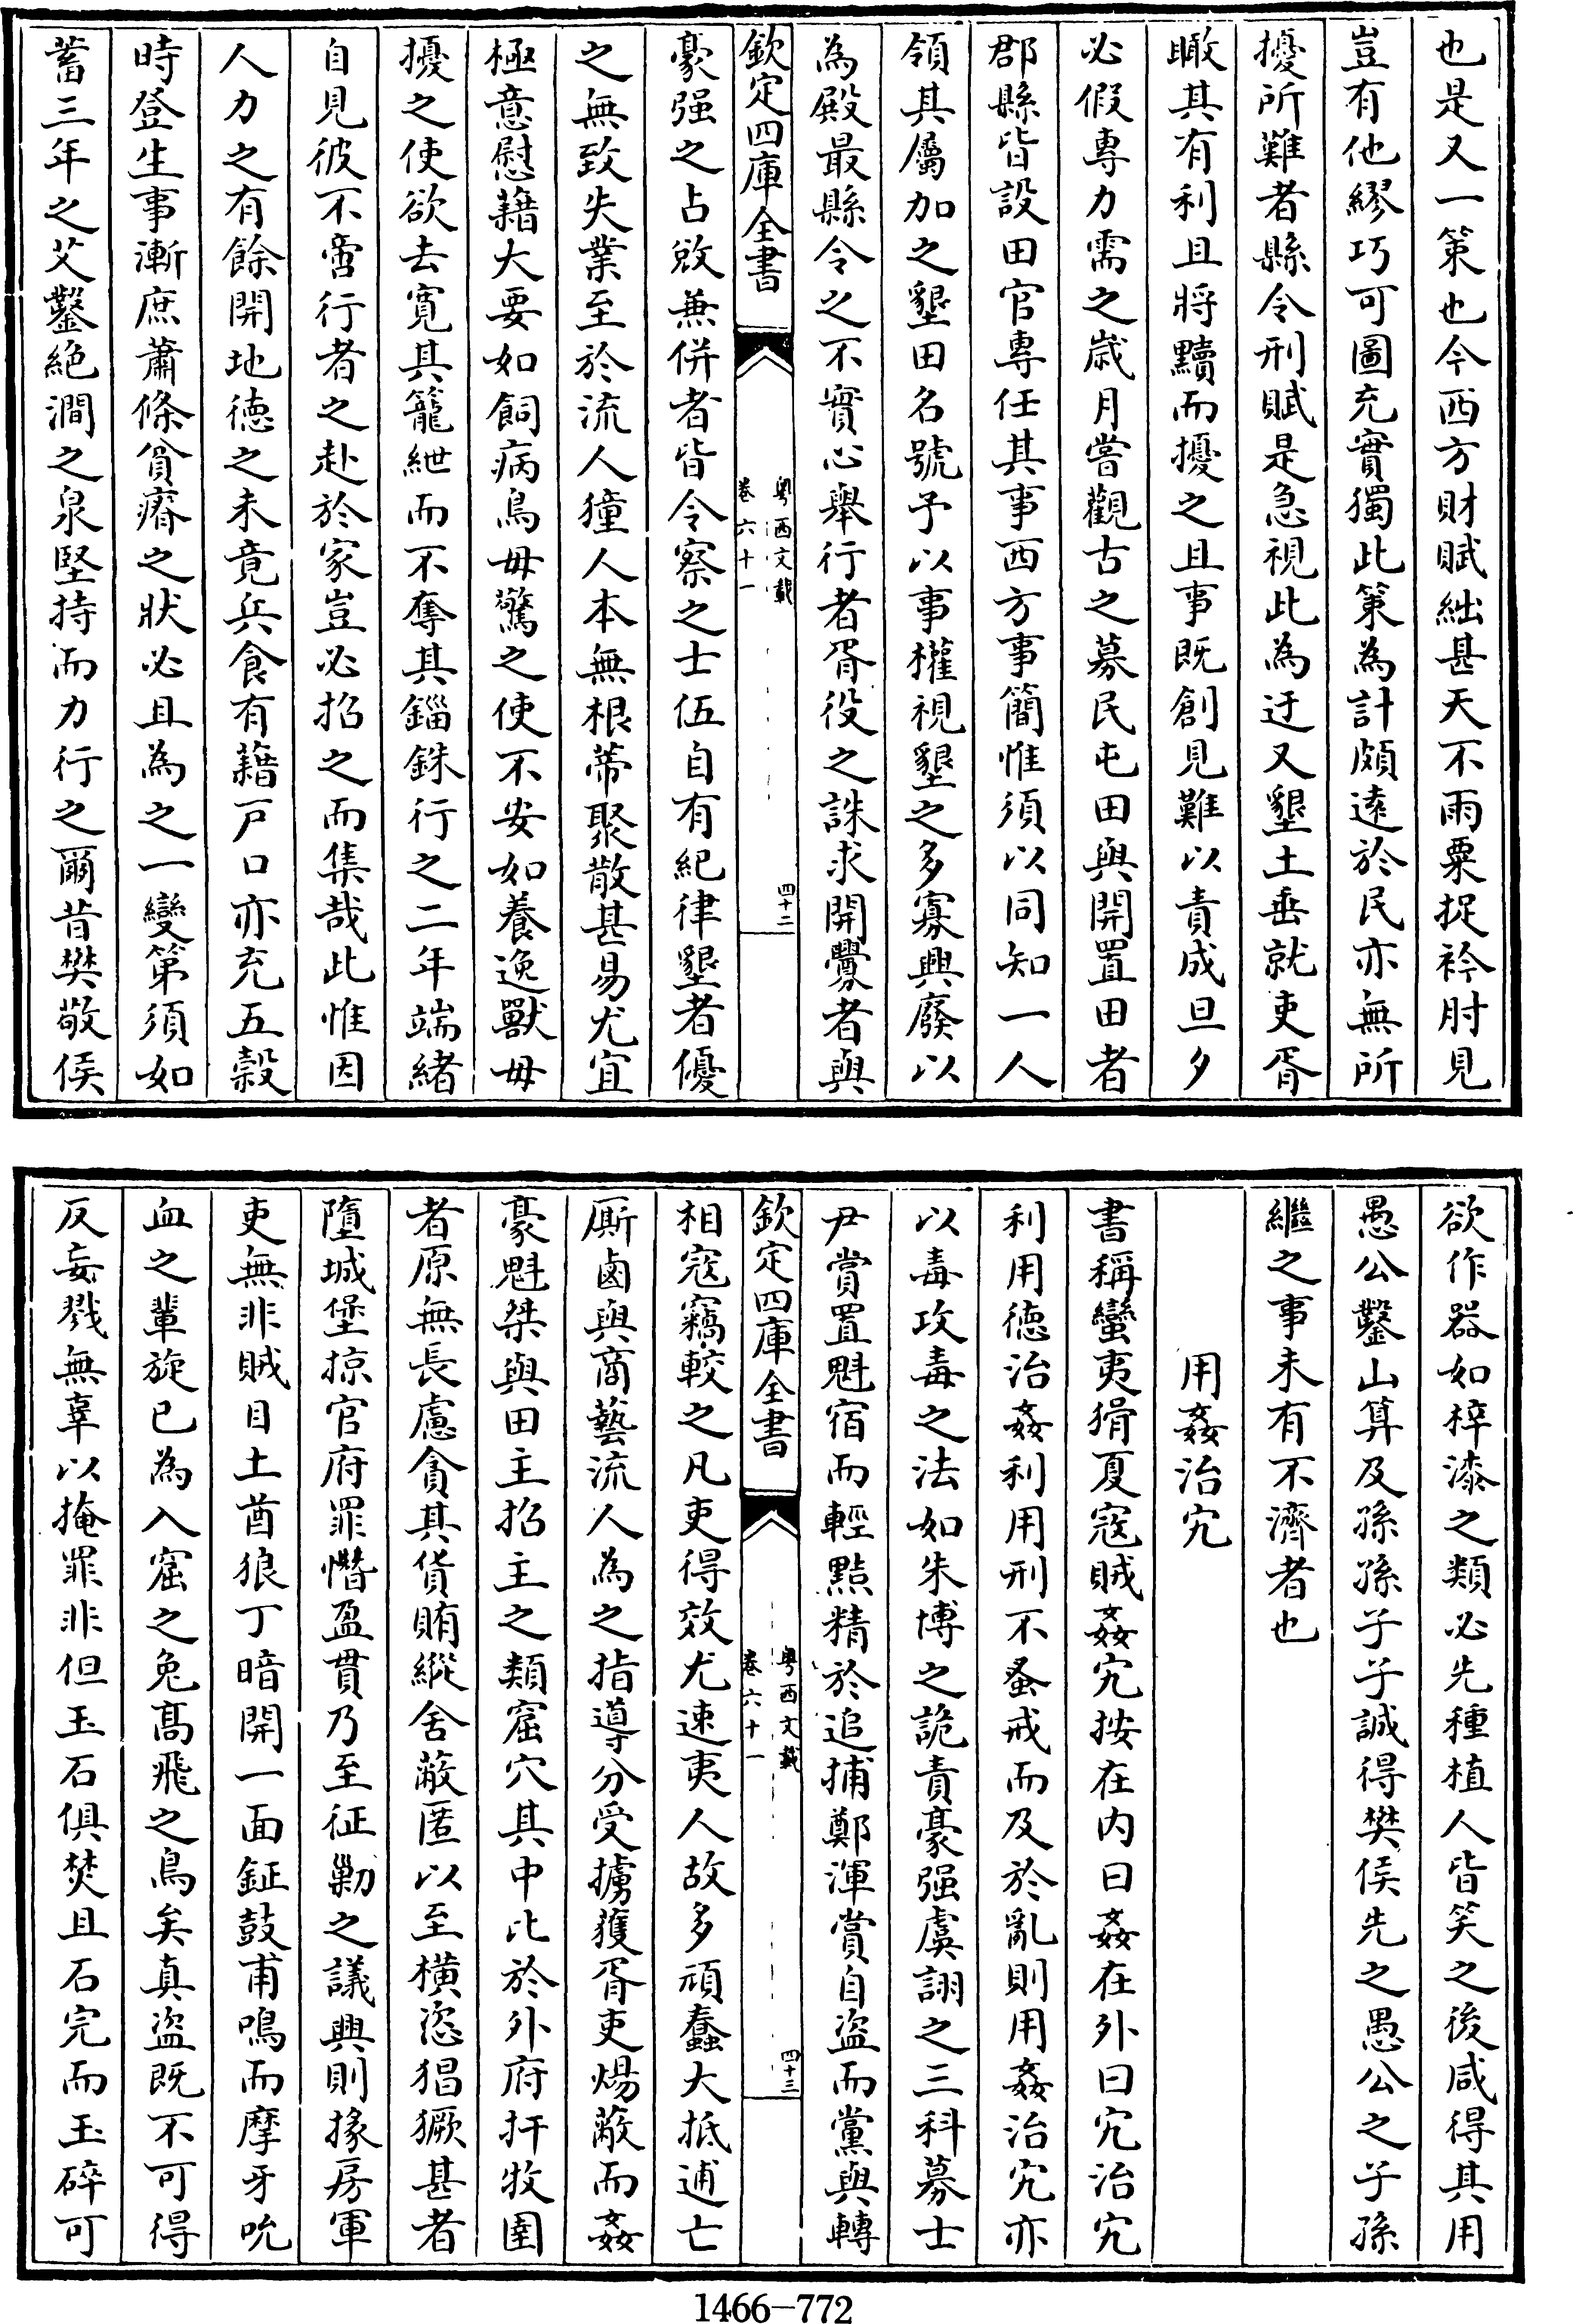 也是又一策也今西方財賦絀甚天不雨粟捉衿肘見
豈有他繆巧可圖充實獨此策為計頗遠於民亦無所
擾所難者縣令刑賦是急視此為迂又墾土垂就吏胥
瞰其有利且將黷而擾之且事既創見難以責成旦夕
必假專力需之歲月嘗觀古之募民屯田與開置田者
郡縣皆設田官專任其事西方事簡惟須以同知一人
領其屬加之墾田名號予以事權視墾之多寡興廢以
為殿最縣令之不實心舉行者胥役之誅求開釁者與
欽定四庫全書
粵西文載
卷六十一
四十二
豪强之占敓兼併者皆令察之士伍自有紀律墾者優
之無致失業至於流人獞人本無根蒂聚散甚易尤宜
極意慰藉大要如飼病鳥毋驚之使不安如養逸獸毋
擾之使欲去寬其籠紲而不奪其錙銖行之二年端緒
自見彼不啻行者之赴於家豈必招之而集哉此惟因
人力之有餘開地徳之未竟兵食有藉戶口亦充五穀
時登生事漸庶蕭條貧瘠之狀必且為之一變第須如
蓄三年之艾鑿絶澗之泉堅持而力行之爾昔樊敬侯
欲作器如梓漆之類必先種植人皆笑之後咸得其用
愚公鑿山算及孫孫子子誠得樊侯先之愚公之子孫
繼之事未有不濟者也
用姦治宄
書稱蠻夷猾夏寇賊姦宄按在内曰姦在外曰宄治宄
利用徳治姦利用刑不蚤戒而及於亂則用姦治宄亦
以毒攻毒之法如朱博之詭責豪强虞詡之三科募士
尹賞置魁宿而輕黠精於追捕鄭渾賞自盜而黨與轉
欽定四庫全書
粵西文載
卷六十一
四十三
相寇竊較之凡吏得效尤速夷人故多頑蠢大抵逋亡
厮鹵與商藝流人為之指導分受擄獲胥吏煬蔽而姦
豪魁桀與田主招主之類窟穴其中比於外府扞牧圉
者原無長慮貪其貨賄縱舍蔽匿以至横恣猖獗甚者
墮城堡掠官府罪㦧盈貫乃至征勦之議興則掾房軍
吏無非賊目土酋狼丁暗開一面鉦鼓甫鳴而摩牙吮
血之輩旋已為入窟之兔髙飛之鳥矣真盜既不可得
反妄戮無辜以掩罪非但玉石俱焚且石完而玉碎可
1466-772